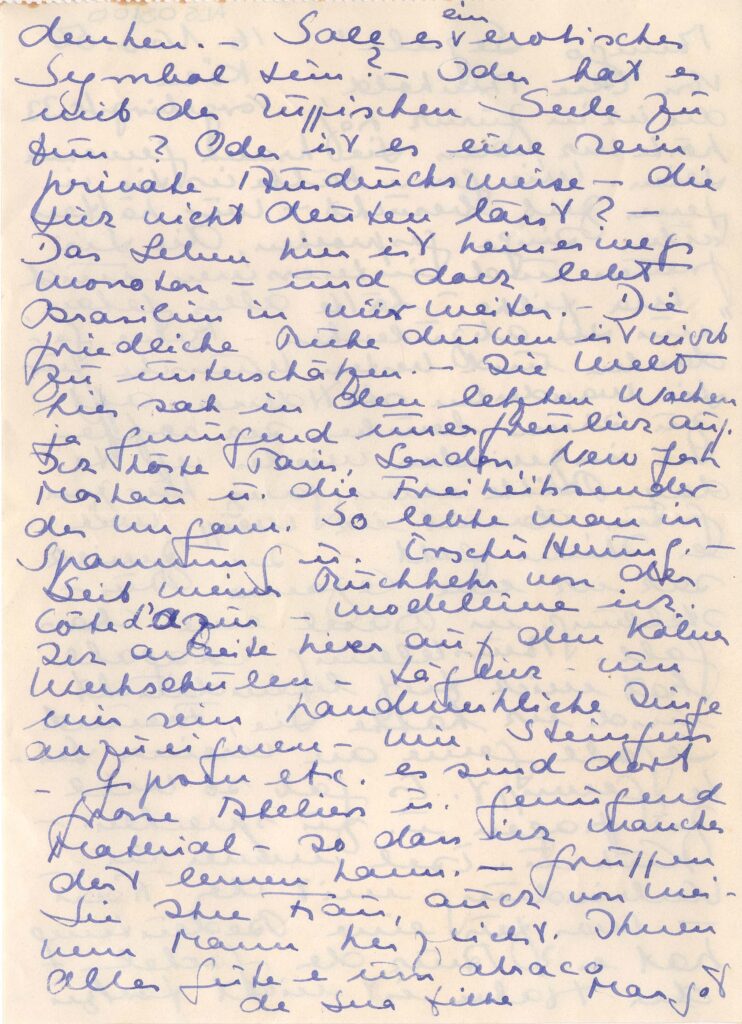 denken. – Soll es ein erotisches
Symbol sein? – Oder hat es
mit der russischen Seele zu
tun? Oder ist es eine rein
private Ausdrucksweise – die
sich nicht deuten lässt? –
Das Leben hier ist keineswegs
monoton – und doch lebt
Brasilien in mir weiter. – Die
friedliche Ruhe drüben ist nicht
zu unterschätzen. – Die Welt
hier sah in den letzten Wochen
ja genügend unerfreulich aus.
Ich hörte Paris, London, New York
Moskau u. die Freiheitssender
der Ungarn. So lebte man in
Spannung u. Erschütterung. –
Seit meiner Rückkehr von der
Côte d'Azur – modelliere ich.
Ich arbeite hier auf den Kölner
Werkschulen – täglich – um
mir rein handwerkliche Dinge
anzueignen – wie Steinguss
– gipsen etc. es sind dort
grosse Ateliers u. genügend
Material – so dass ich manches
dort lernen kann. – Grüssen
Sie Ihre Frau, auch von mei-
nem Mann herzlichst. Ihnen
alles Gute e um abraco
de sua Margot